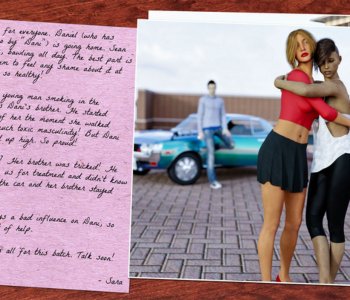 for everyone. Daniel (who has
go by "Dani") is going home. Sean
, bawling all day. The best part is
em to feel any shame about it at
so healthy!
young man smoking in the
Dani's brother. He started
f her the moment she walked
uch toxic masculinity! But Dani
up high. So proud!
! Her brother was tricked! He
us for treatment and didn't know
the car and her brother stayed
s a bad influence on Dani, so
of help.
all for this batch. Talk soon!
- Sara